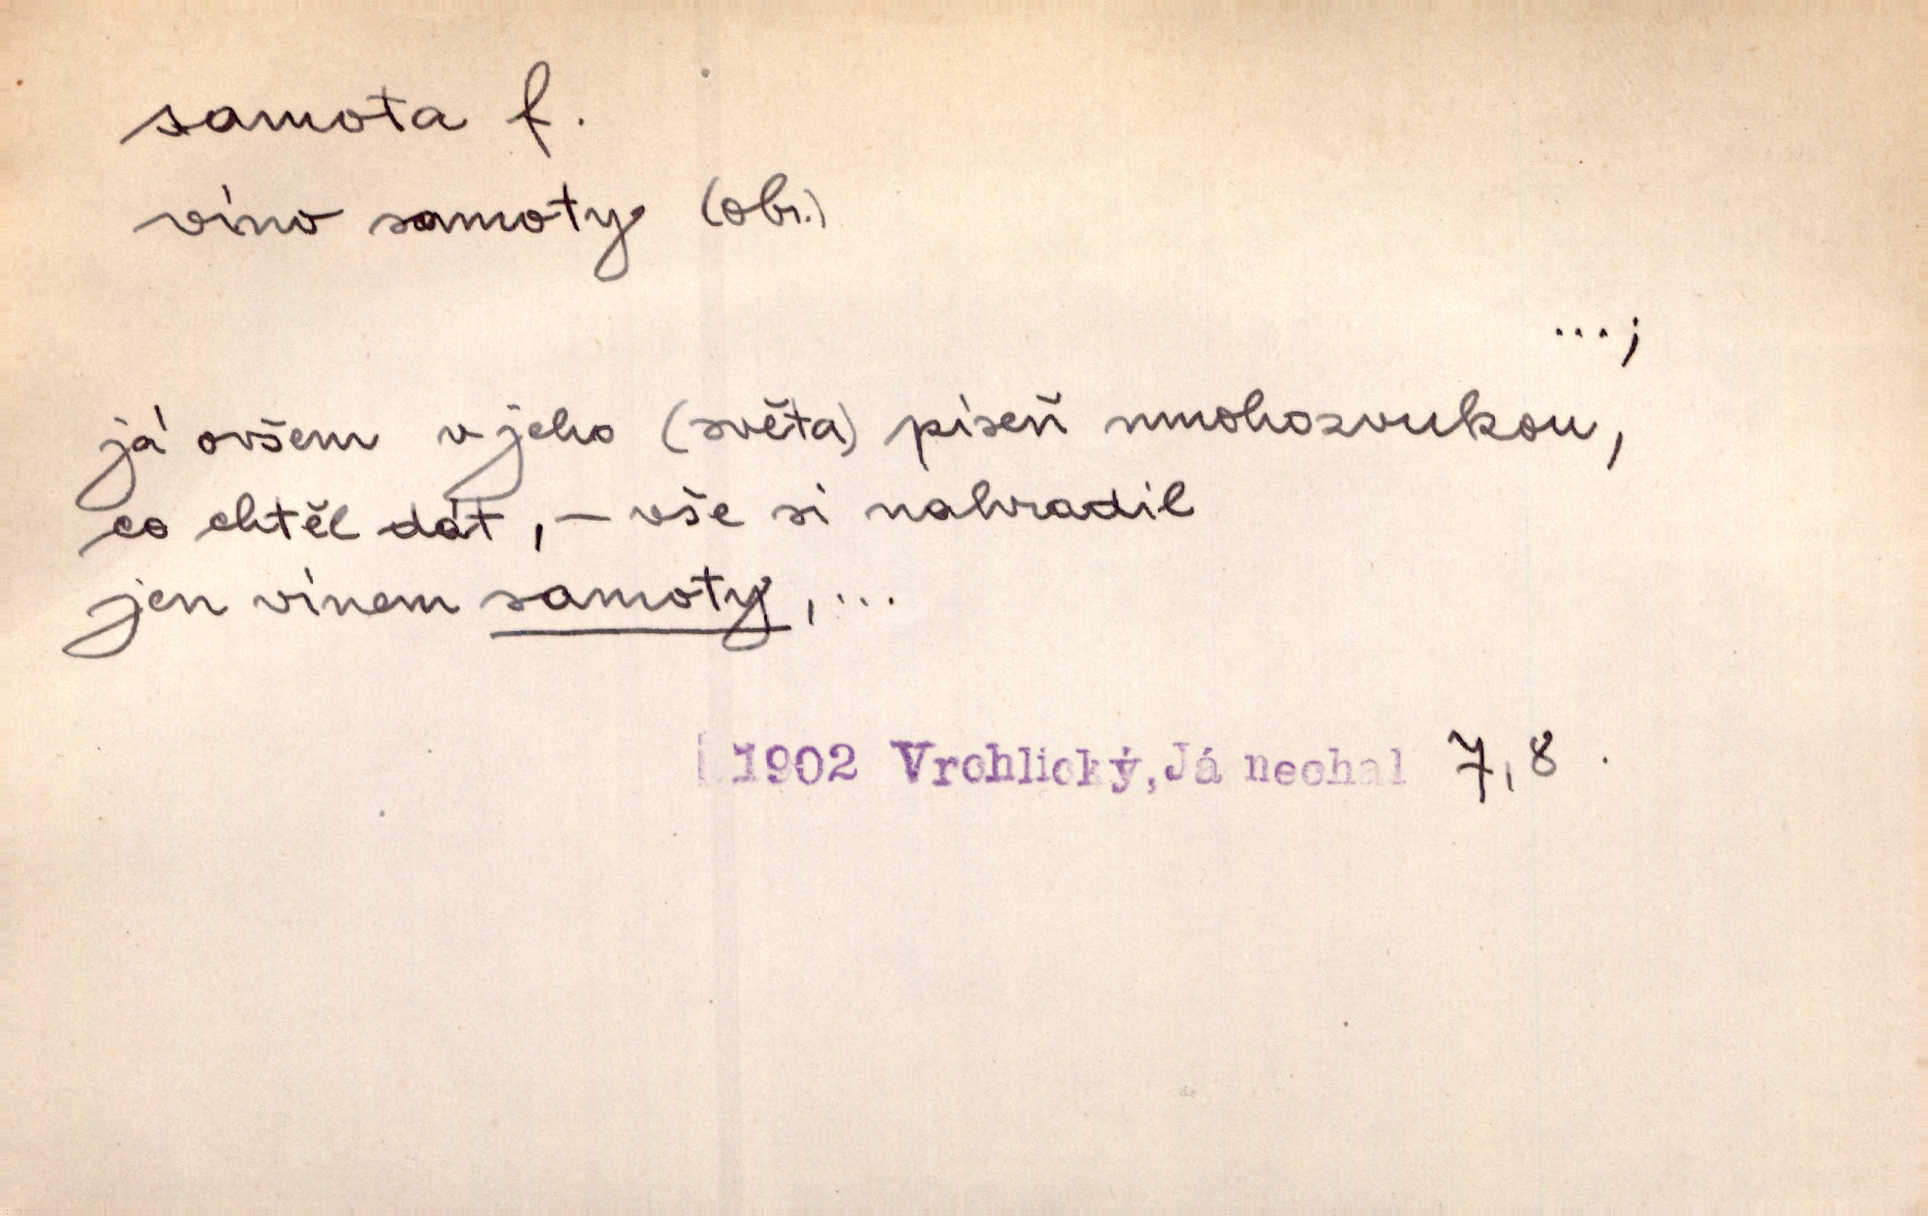 samota f.
víno samoty (obr.)
...;
já ovšem v jeho (světa) píseň mnohozvukou,
co chtěl dát, – vše si nahradil
jen vínem samoty, ...
1902 Vrchlický, Já nechal 7,8.